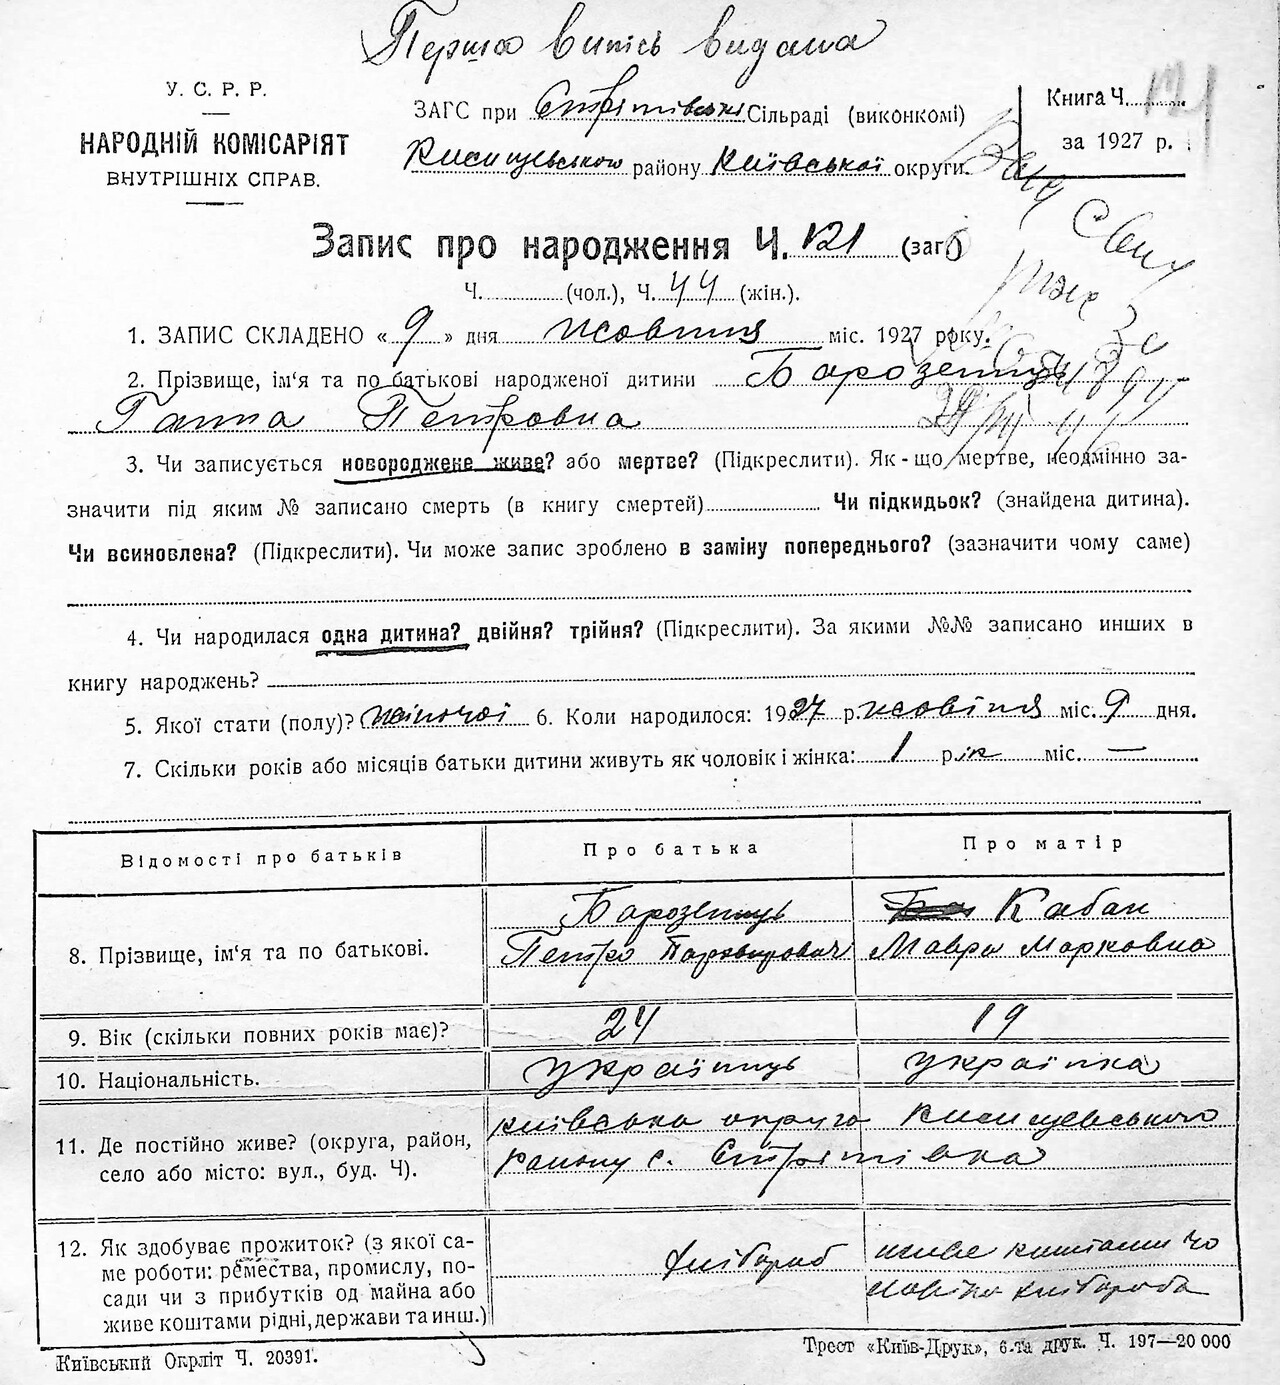 Перша випись видана
У. С. Р. Р.
НАРОДНІЙ КОМІСАРІЯТ
ВНУТРІШНІХ СПРАВ.
ЗАГС при Стрітівські Сільраді (виконкомі)
району Київської округи.
Книга Ч. 121
за 1927 р.
Запис про народження Ч. 121 (заг.)
Ч. (чол.), Ч. 44 (жін.).
1. ЗАПИС СКЛАДЕНО « 9 » дня жовтня міс. 1927 року.
2. Прізвище, ім‘я та по батькові народженої дитини Барозетць
Ганна Петровна
3. Чи записується новороджене живе? або мертве? (Підкреслити). Як-що мертве, неодмінно за-
значити під яким № записано смерть (в книгу смертей) Чи підкидьок? (знайдена дитина).
Чи всиновлена? (Підкреслити). Чи може запис зроблено в заміну попереднього? (зазначити чому саме)
4. Чи народилася одна дитина? двійня? трійня? (Підкреслити). За якими №№ записано инших в
книгу народжень?
5. Якої стати (полу)? жіночої 6. Коли народилося: 1927 р. жовтня міс. 9 дня.
7. Скільки років або місяців батьки дитини живуть як чоловік і жінка: 1 рік міс. —
Відомості про батьків Про батька Про матір
8. Прізвище, ім‘я та по батькові.
Барозетць Кабан
Петро Мавра Марковна
9. Вік (скільки повних років має)? 24 19
10. Національність. Українць Українка
11. Де постійно живе? (округа, район,
село або місто: вул., буд. Ч).
Київська округа
району с. Стрітівка
12. Як здобуває прожиток? (з якої са-
ме роботи: ремества, промислу, по-
сади чи з прибутків од майна або
живе коштами рідні, держави та инш.)
хлібороб живе коштами чо
ловіка хлібороба
Київський Окрліт Ч. 20391.
Трест «Київ-Друк», 6-та друк. Ч. 197—20 000